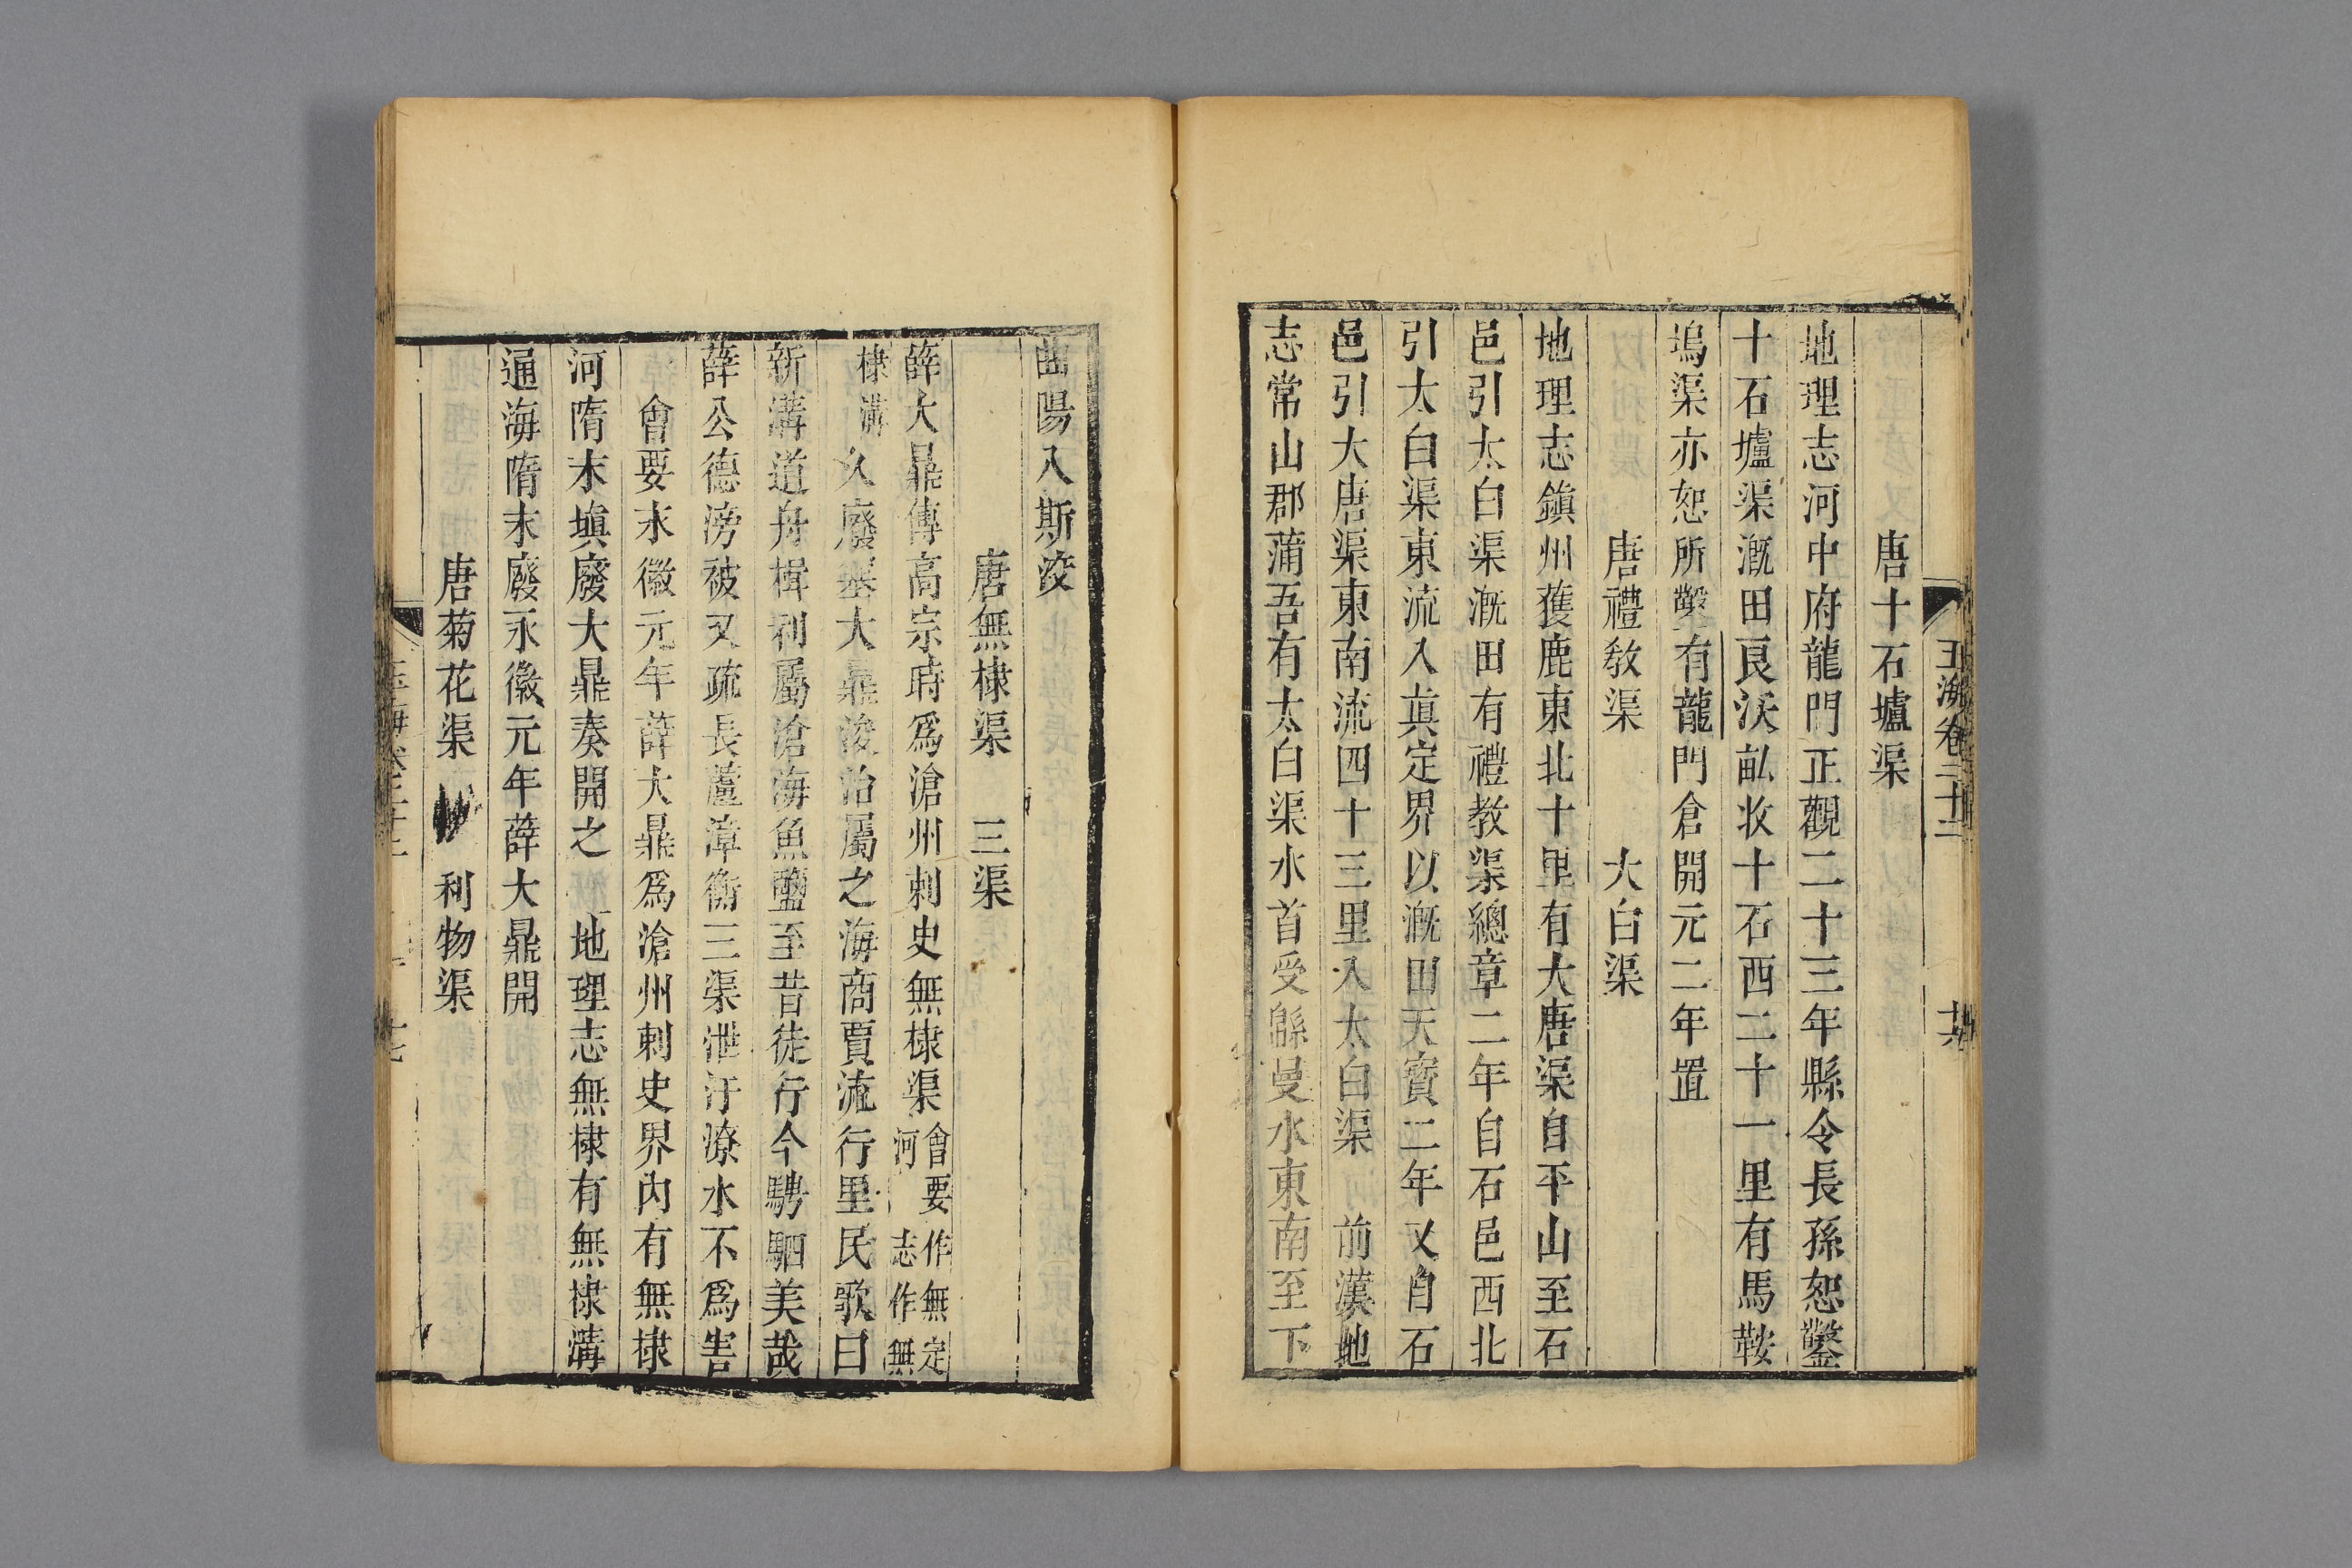 玉海卷二十二 十六
唐十石壚渠
地理志河中府龍門正觀二十三年縣令長孫恕鑿
十石壚渠漑田良沃畝收十石西二十一里有馬鞍
塢渠亦恕所鑿有龍門倉開元二年置
唐禮教渠 大白渠
地理志鎭州獲鹿東北十里有大唐渠自平山至石
邑引太白渠漑田有禮教渠總章二年自石邑西北
引太白渠東流入真定界以漑田天寶二年又自石
邑引大唐渠東南流四十三里入太白渠 前漢地
志常山郡蒲吾有太白渠水首受緜曼水東南至下
曲陽入斯洨
唐無棣渠 三渠
薛大鼎傳高宗時爲滄州刺史無棣渠會要作無定河 志作無
棣溝久廢塞大鼎浚治屬之海商賈流行里民歌曰
新溝道舟楫利屬滄海魚鹽至昔徒行今騁駟美哉
薛公德滂被又疏長蘆漳衡三渠泄汙潦水不爲害
會要永徽元年薛大鼎爲滄州刺史界内有無棣
河隋末塡廢大鼎奏開之 地理志無棣有無棣溝
通海隋末廢永徽元年薛大鼎開
唐菊花渠 利物渠